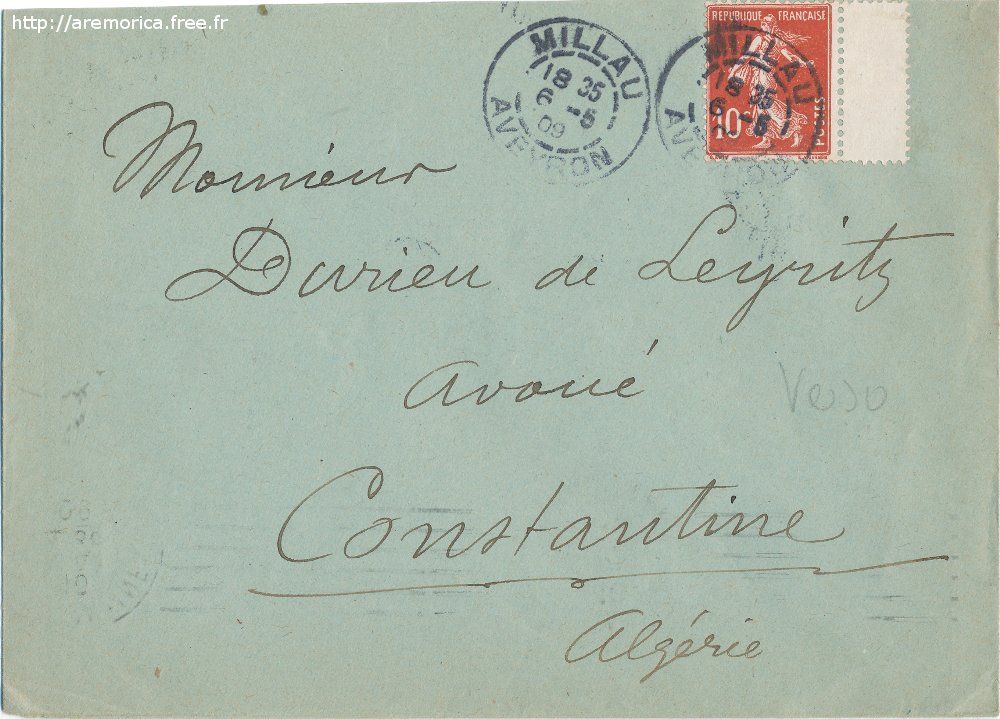 http://aremorica.free.fr
MILLAU
18 35
6 -5
09
AVEYRON
MILLAU
18 35
6 -5
AVEYRON
REPUBLIQUE FRANÇAISE
10
POSTES
Monsieur
Durieu de Leyritz
Avoué
Verso
Constantine
Algérie